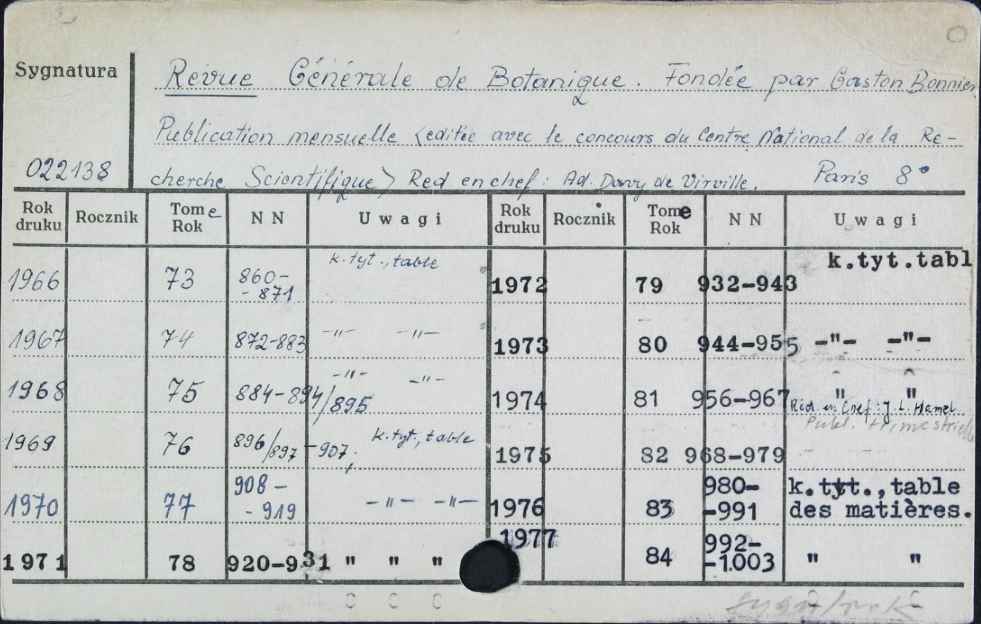 Sygnatura
Revue Générale de Botanique. Fondée par Gaston Bonnier.
Publication mensuelle <editée avec le concours du Centre National de la Re-
022138
cherche Scientifique> Red en chef: Ad. Davy de Virville. Paris 8°
Rok druku Rocznik Tome Rok N N Uwagi Rok druku Rocznik Tome Rok N N Uwagi
1966 73 860-871 k.tyt., table 1972 79 932-943 k.tyt.tabl
1967 74 872-883 -"- -"- 1973 80 944-955 -"- -"-
1968 75 884-894/895 -"- -"- 1974 81 956-967 " "
Réd. en Chef: J. L. Hamel
Publ. trimestrielle
1969 76 896/897-907; k.tyt., table 1975 82 968-979 - -
1970 77 908--919 -"- -"- 1976 83 980--991 k.tyt.,table
des matières.
1971 78 920-931 " " " 1977 84 992--1.003 " "